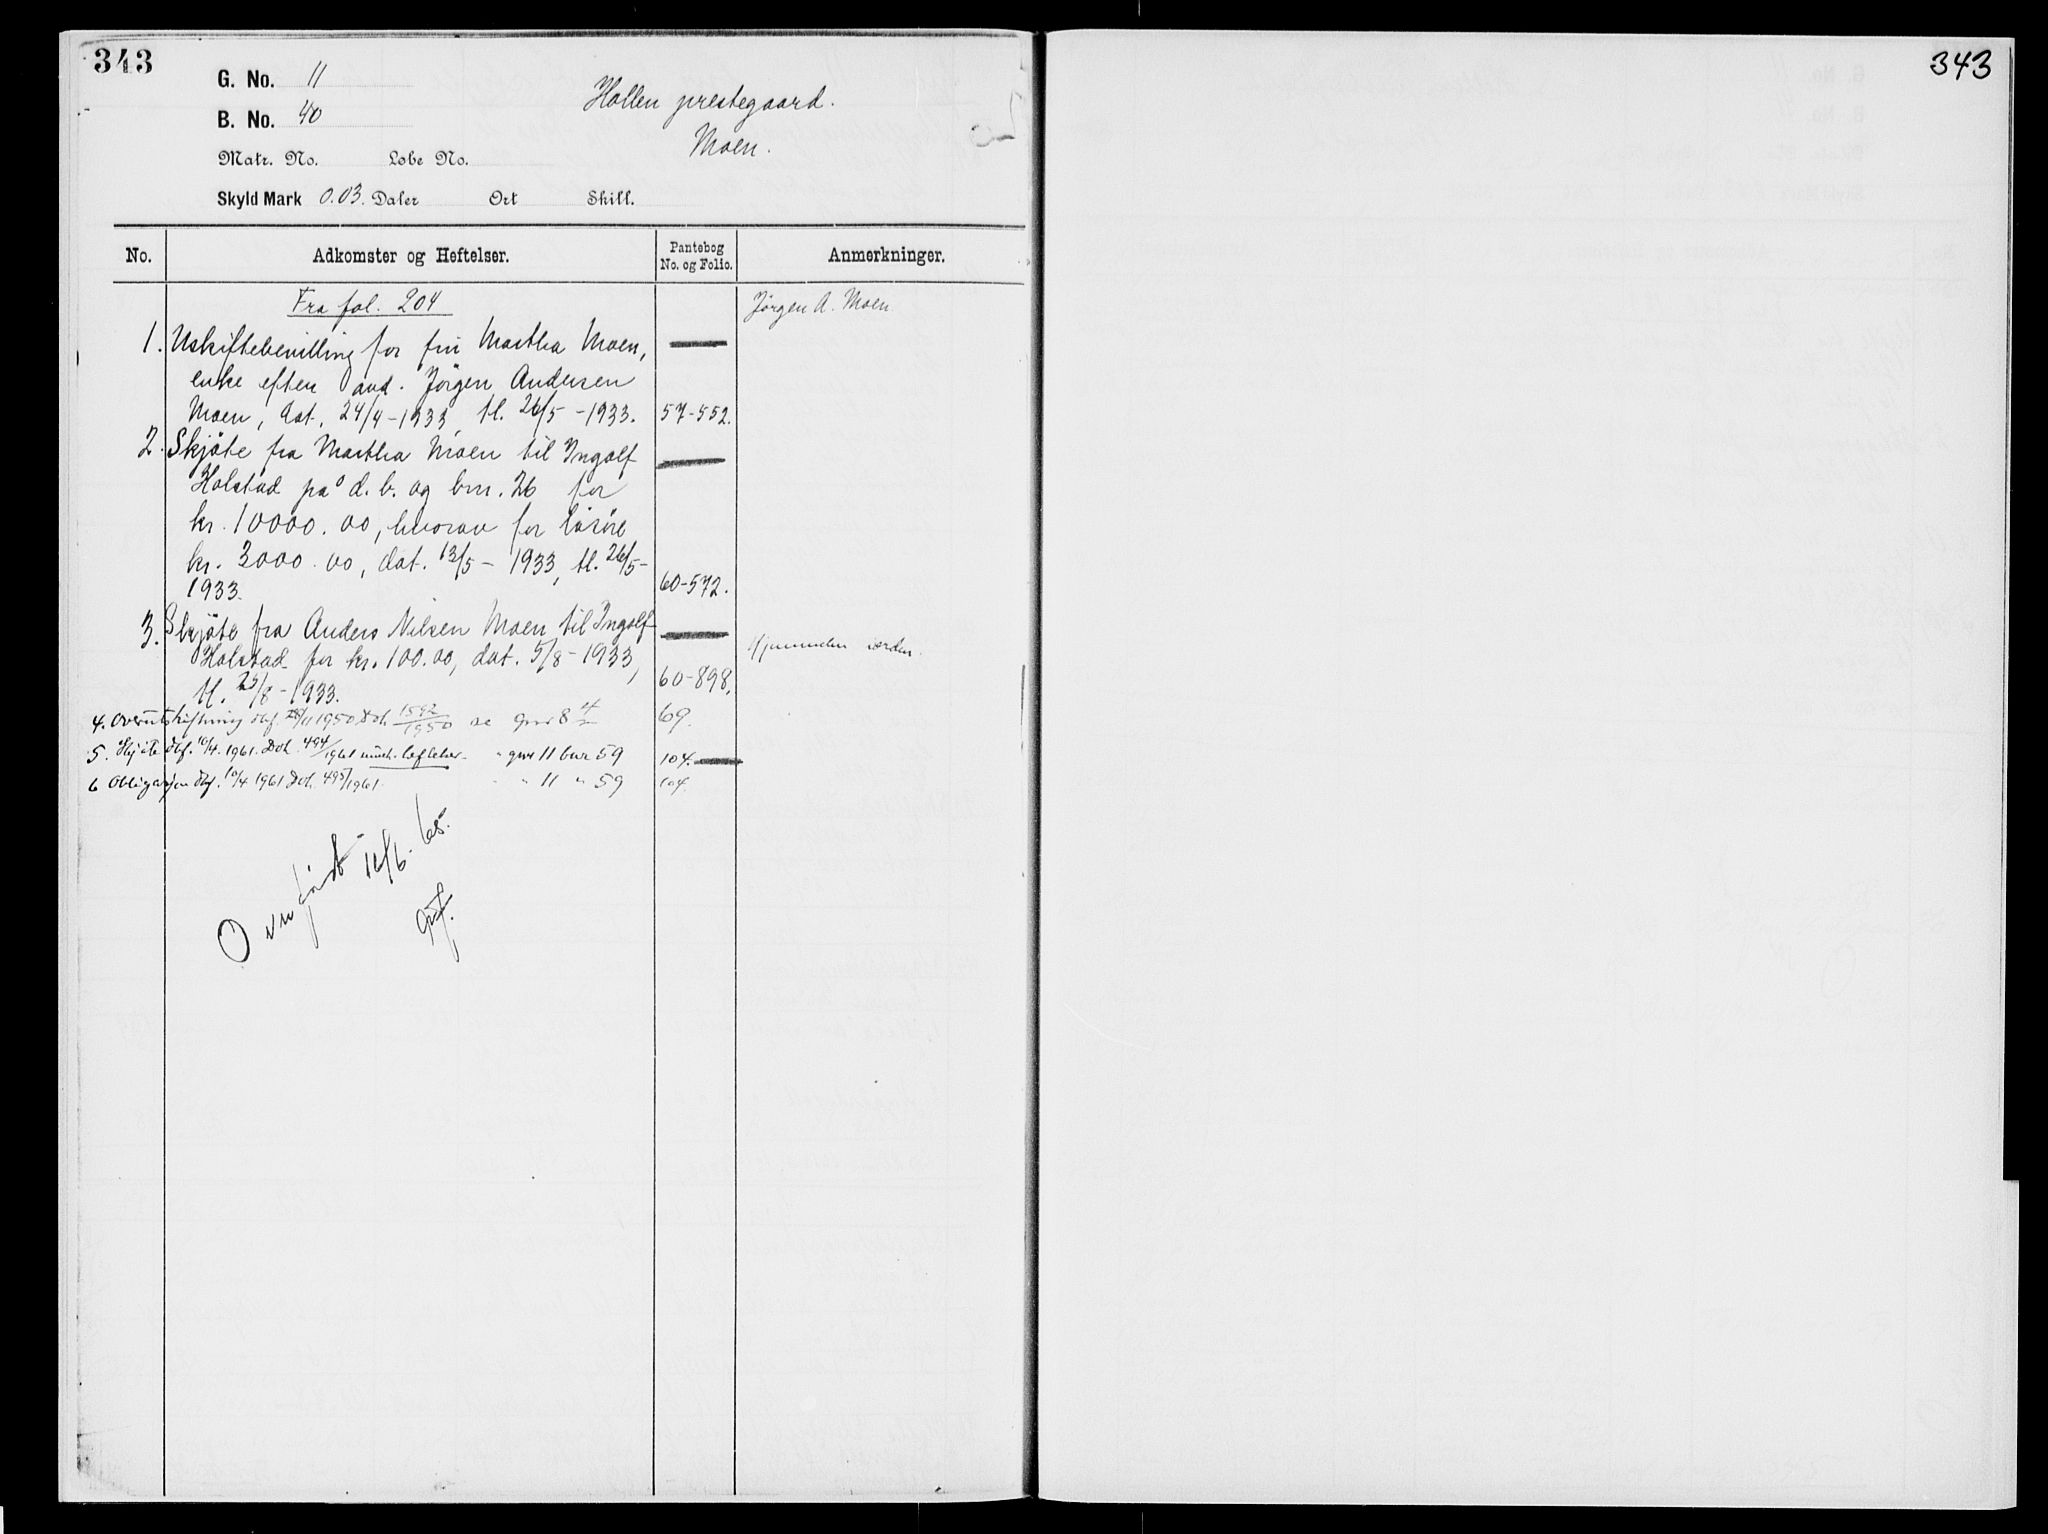 343
G. No. 11
B. No. 40
Hollen prestegaard.
Moen.
Matr. No. Løbe No.
Skyld Mark 0.03. Daler Ort Skill.
No. Adkomster og Heftelser. Pantebog No. og Folio. Anmerkninger.
Fra fol. 204
Jörgen A. Moen
1. Uskiftebevilling for fru Martha Moen,
enke efter avd. Jörgen Andersen
Moen, dat. 24/4-1933, tl. 26/5-1933. 57-552.
2. Skjöte fra Martha Moen til Ingolf
Holstad på d. b. og bnr. 26 for
kr. 10000.00, hvorav for lösöre
kr. 3000.00, dat. 13/5-1933, tl. 26/5-
1933. 60-572.
3. Skjöte fra Anders Nilsen Moen til Ingolf
Holstad for kr. 100.00, dat. 5/8-1933,
Hjemmelen i orden.
tl. 25/8-1933. 60-898.
4. Overutskiftning dbf. 28/11 1950 Doh 1592/1950 se gnr 8 69.
5. Skjöte dbf. 10/4. 1961. Doh. 494/1961 " gnr 11 bnr 59 104.
6 Obligasjon dbf. 10/4 1961 Doh. 495/1961. " " 11 " 59 104.
Overfört 16/6. 65.
343